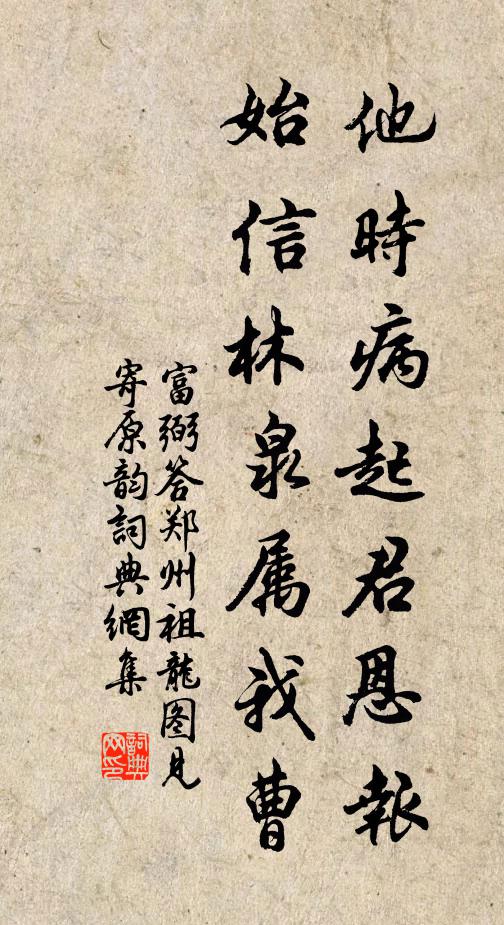 他時病起君恩報
始信林泉属我曹
富弼答郑州祖龍图見
寄原韵詞典網集
詞典网印